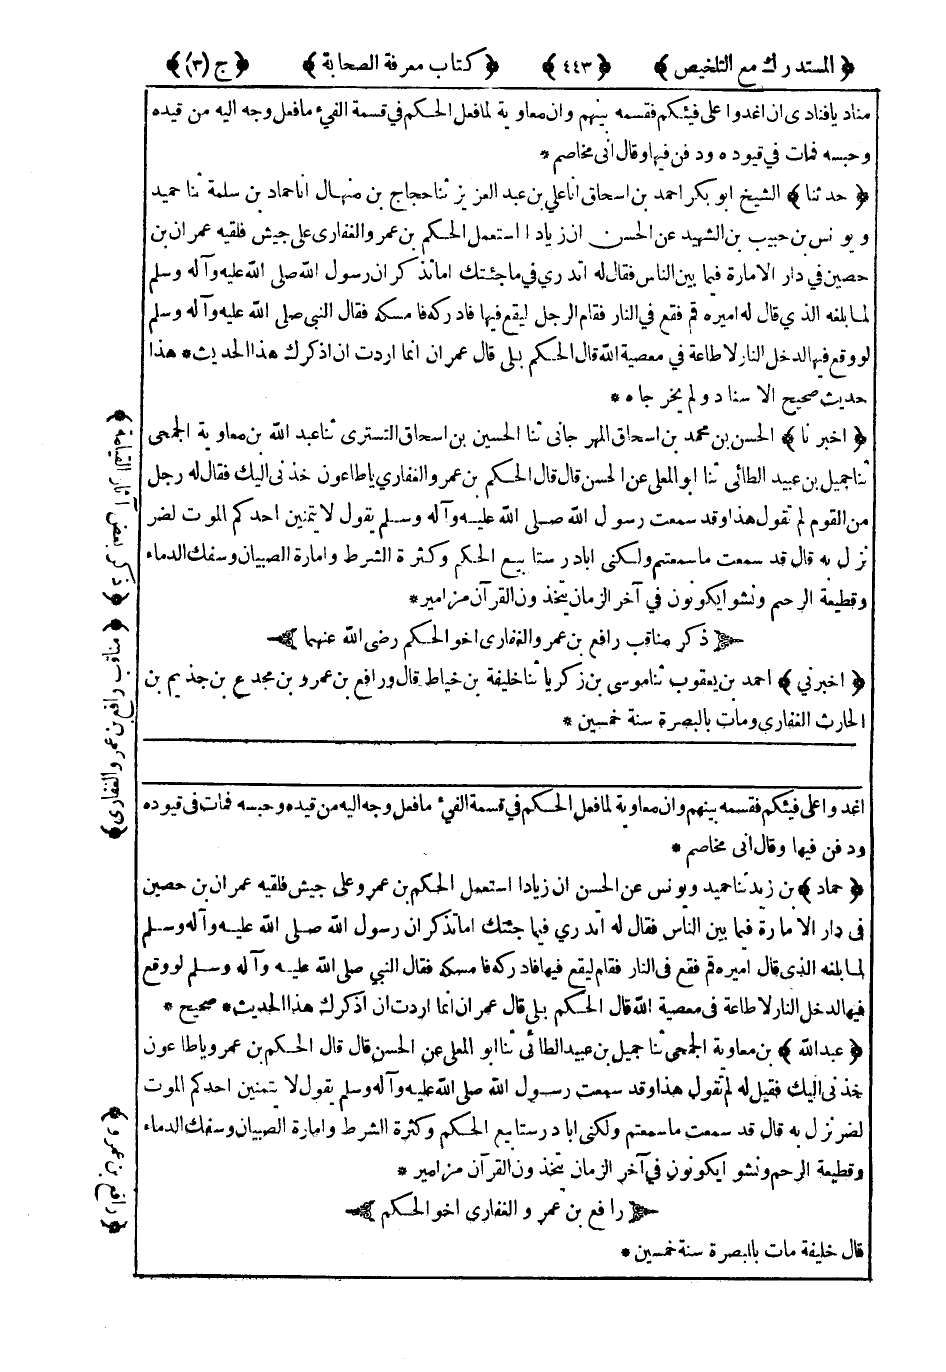 ﴿ المستدرك مع التلخيص ﴾ ﴿ ٤٤٣ ﴾ ﴿ كتاب معرفة الصحابة ﴾ ﴿ ج (٣) ﴾
مناديا فنادى ان اغدوا على فيئكم فقسمه بينهم وان معاوية لما فعل الحكم في قسمة الفيء ما فعل وجه اليه من قيده
وحبسه فمات في قيوده ودفن فيها وقال انى مخاصم *
﴿ حدثنا ﴾ الشيخ ابو بكر احمد بن اسحاق انا علي بن عبد العزيز ثنا حجاج بن منهال انا حماد بن سلمة ثنا حميد
ويونس بن حبيب بن الشهيد عن الحسن ان زيادا استعمل الحكم بن عمرو الغفارى على جيش فلقيه عمران بن
حصين في دار الامارة فيما بين الناس فقال له اتدري في ما جئتك اما تذكر ان رسول الله صلى الله عليه وآله وسلم
لما بلغه الذي قال له اميره قم فقع في النار فقام الرجل ليقع فيها فادركه فامسكه فقال النبي صلى الله عليه وآله وسلم
لو وقع فيها لدخل النار لا طاعة في معصية الله قال الحكم بلى قال عمران انما اردت ان اذكرك هذا الحديث * هذا
حديث صحيح الاسناد ولم يخرجاه *
﴿ اخبرنا ﴾ الحسن بن محمد بن اسحاق المهرجانى ثنا الحسين بن اسحاق التسترى ثنا عبد الله بن معاوية الجمحى
ثنا جميل بن عبيد الطائى ثنا ابو المعلى عن الحسن قال قال الحكم بن عمرو الغفاري ياطاعون خذنى اليك فقال له رجل
من القوم لم تقول هذا وقد سمعت رسول الله صلى الله عليه وآله وسلم يقول لا يتمنين احدكم الموت لضر
نزل به قال قد سمعت ما سمعتم ولكنى ابادر ستا بيع الحكم وكثرة الشرط وامارة الصبيان وسفك الدماء
وقطيعة الرحم ونشوا يكونون في آخر الزمان يتخذون القرآن مزامير *
﴿ ذكر مناقب رافع بن عمرو الغفارى اخو الحكم رضى الله عنهما ﴾
﴿ اخبرني ﴾ احمد بن يعقوب ثنا موسى بن زكريا ثنا خليفة بن خياط قال ورافع بن عمرو بن مجدع بن جذيم بن
الحارث الغفارى ومات بالبصرة سنة خمسين *
اغدوا على فيئكم فقسمه بينهم وان معاوية لما فعل الحكم في قسمة الفيء ما فعل وجه اليه من قيده وحبسه فمات فى قيوده
ودفن فيها وقال انى مخاصم *
﴿ حماد ﴾ بن زيد ثنا حميد ويونس عن الحسن ان زيادا استعمل الحكم بن عمرو على جيش فلقيه عمران بن حصين
فى دار الامارة فيما بين الناس فقال له اتدري فيما جئتك اما تذكر ان رسول الله صلى الله عليه وآله وسلم
لما بلغه الذى قال اميره قم فقع فى النار فقام ليقع فيها فادركه فامسكه فقال النبي صلى الله عليه وآله وسلم لو وقع
فيها لدخل النار لا طاعة فى معصية الله قال الحكم بلى قال عمران انما اردت ان اذكرك هذا الحديث * صحيح *
﴿ عبدالله ﴾ بن معاوية الجمحى ثنا جميل بن عبيد الطائى ثنا ابو المعلى عن الحسن قال قال الحكم بن عمرو ياطاعون
خذنى اليك فقيل له لم تقول هذا وقد سمعت رسول الله صلى الله عليه وآله وسلم يقول لا يتمنين احدكم الموت
لضر نزل به قال قد سمعت ما سمعتم ولكنى ابادر ستا بيع الحكم وكثرة الشرط وامارة الصبيان وسفك الدماء
وقطيعة الرحم ونشوا يكونون في آخر الزمان يتخذون القرآن مزامير *
﴿ رافع بن عمرو الغفارى اخو الحكم ﴾
قال خليفة مات بالبصرة سنة خمسين *
﴿ ذكر بعض آثار القيامة ﴾
﴿ مناقب رافع بن عمرو الغفارى ﴾
﴿ رافع بن عمرو ﴾